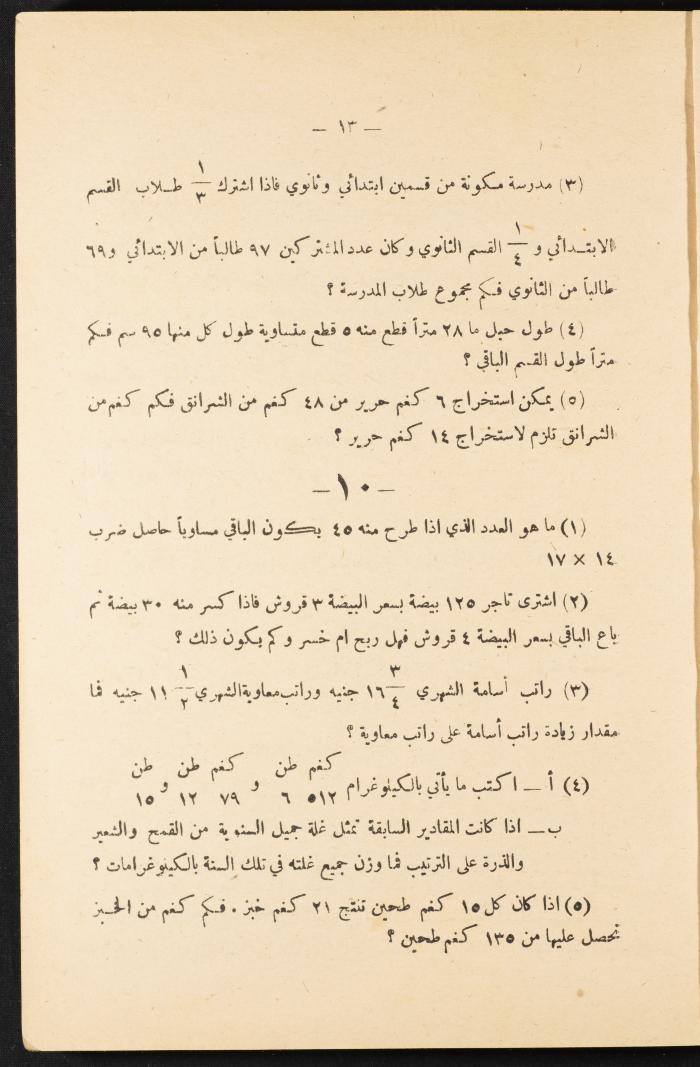 — ١٣ —
(٣) مدرسة مكونة من قسمين ابتدائي وثانوي فاذا اشترك ١/٣ طلاب القسم
الابتدائي و ١/٤ القسم الثانوي وكان عدد المشتركين ٩٧ طالباً من الابتدائي و٦٩
طالباً من الثانوي فكم مجموع طلاب المدرسة ؟
(٤) طول حبل ما ٢٨ متراً قطع منه ٥ قطع متساوية طول كل منها ٩٥ سم فكم
متراً طول القسم الباقي ؟
(٥) يمكن استخراج ٦ كغم حرير من ٤٨ كغم من الشرانق فكم كغم من
الشرانق تلزم لاستخراج ١٤ كغم حرير ؟
— ١٠ —
(١) ما هو العدد الذي اذا طرح منه ٤٥ يكون الباقي مساوياً حاصل ضرب
١٤ × ١٧
(٢) اشترى تاجر ١٢٥ بيضة بسعر البيضة ٣ قروش فاذا كسر منه ٣٠ بيضة ثم
باع الباقي بسعر البيضة ٤ قروش فهل ربح ام خسر وكم يكون ذلك ؟
(٣) راتب أسامة الشهري ١٦ ٣/٤ جنيه وراتب معاوية الشهري ١١ ١/٢ جنيه فما
مقدار زيادة راتب أسامة على راتب معاوية ؟
كغم طن كغم طن طن
(٤) أ — اكتب ما يأتي بالكيلوغرام ٥١٢ ٦ و ٧٩ ١٢ و ١٥
ب — اذا كانت المقادير السابقة تمثل غلة جميل السنوية من القمح والشعير
والذرة على الترتيب فما وزن جميع غلته في تلك السنة بالكيلوغرامات ؟
(٥) اذا كان كل ١٥ كغم طحين تنتج ٢١ كغم خبز . فكم كغم من الخبز
تحصل عليها من ١٣٥ كغم طحين ؟